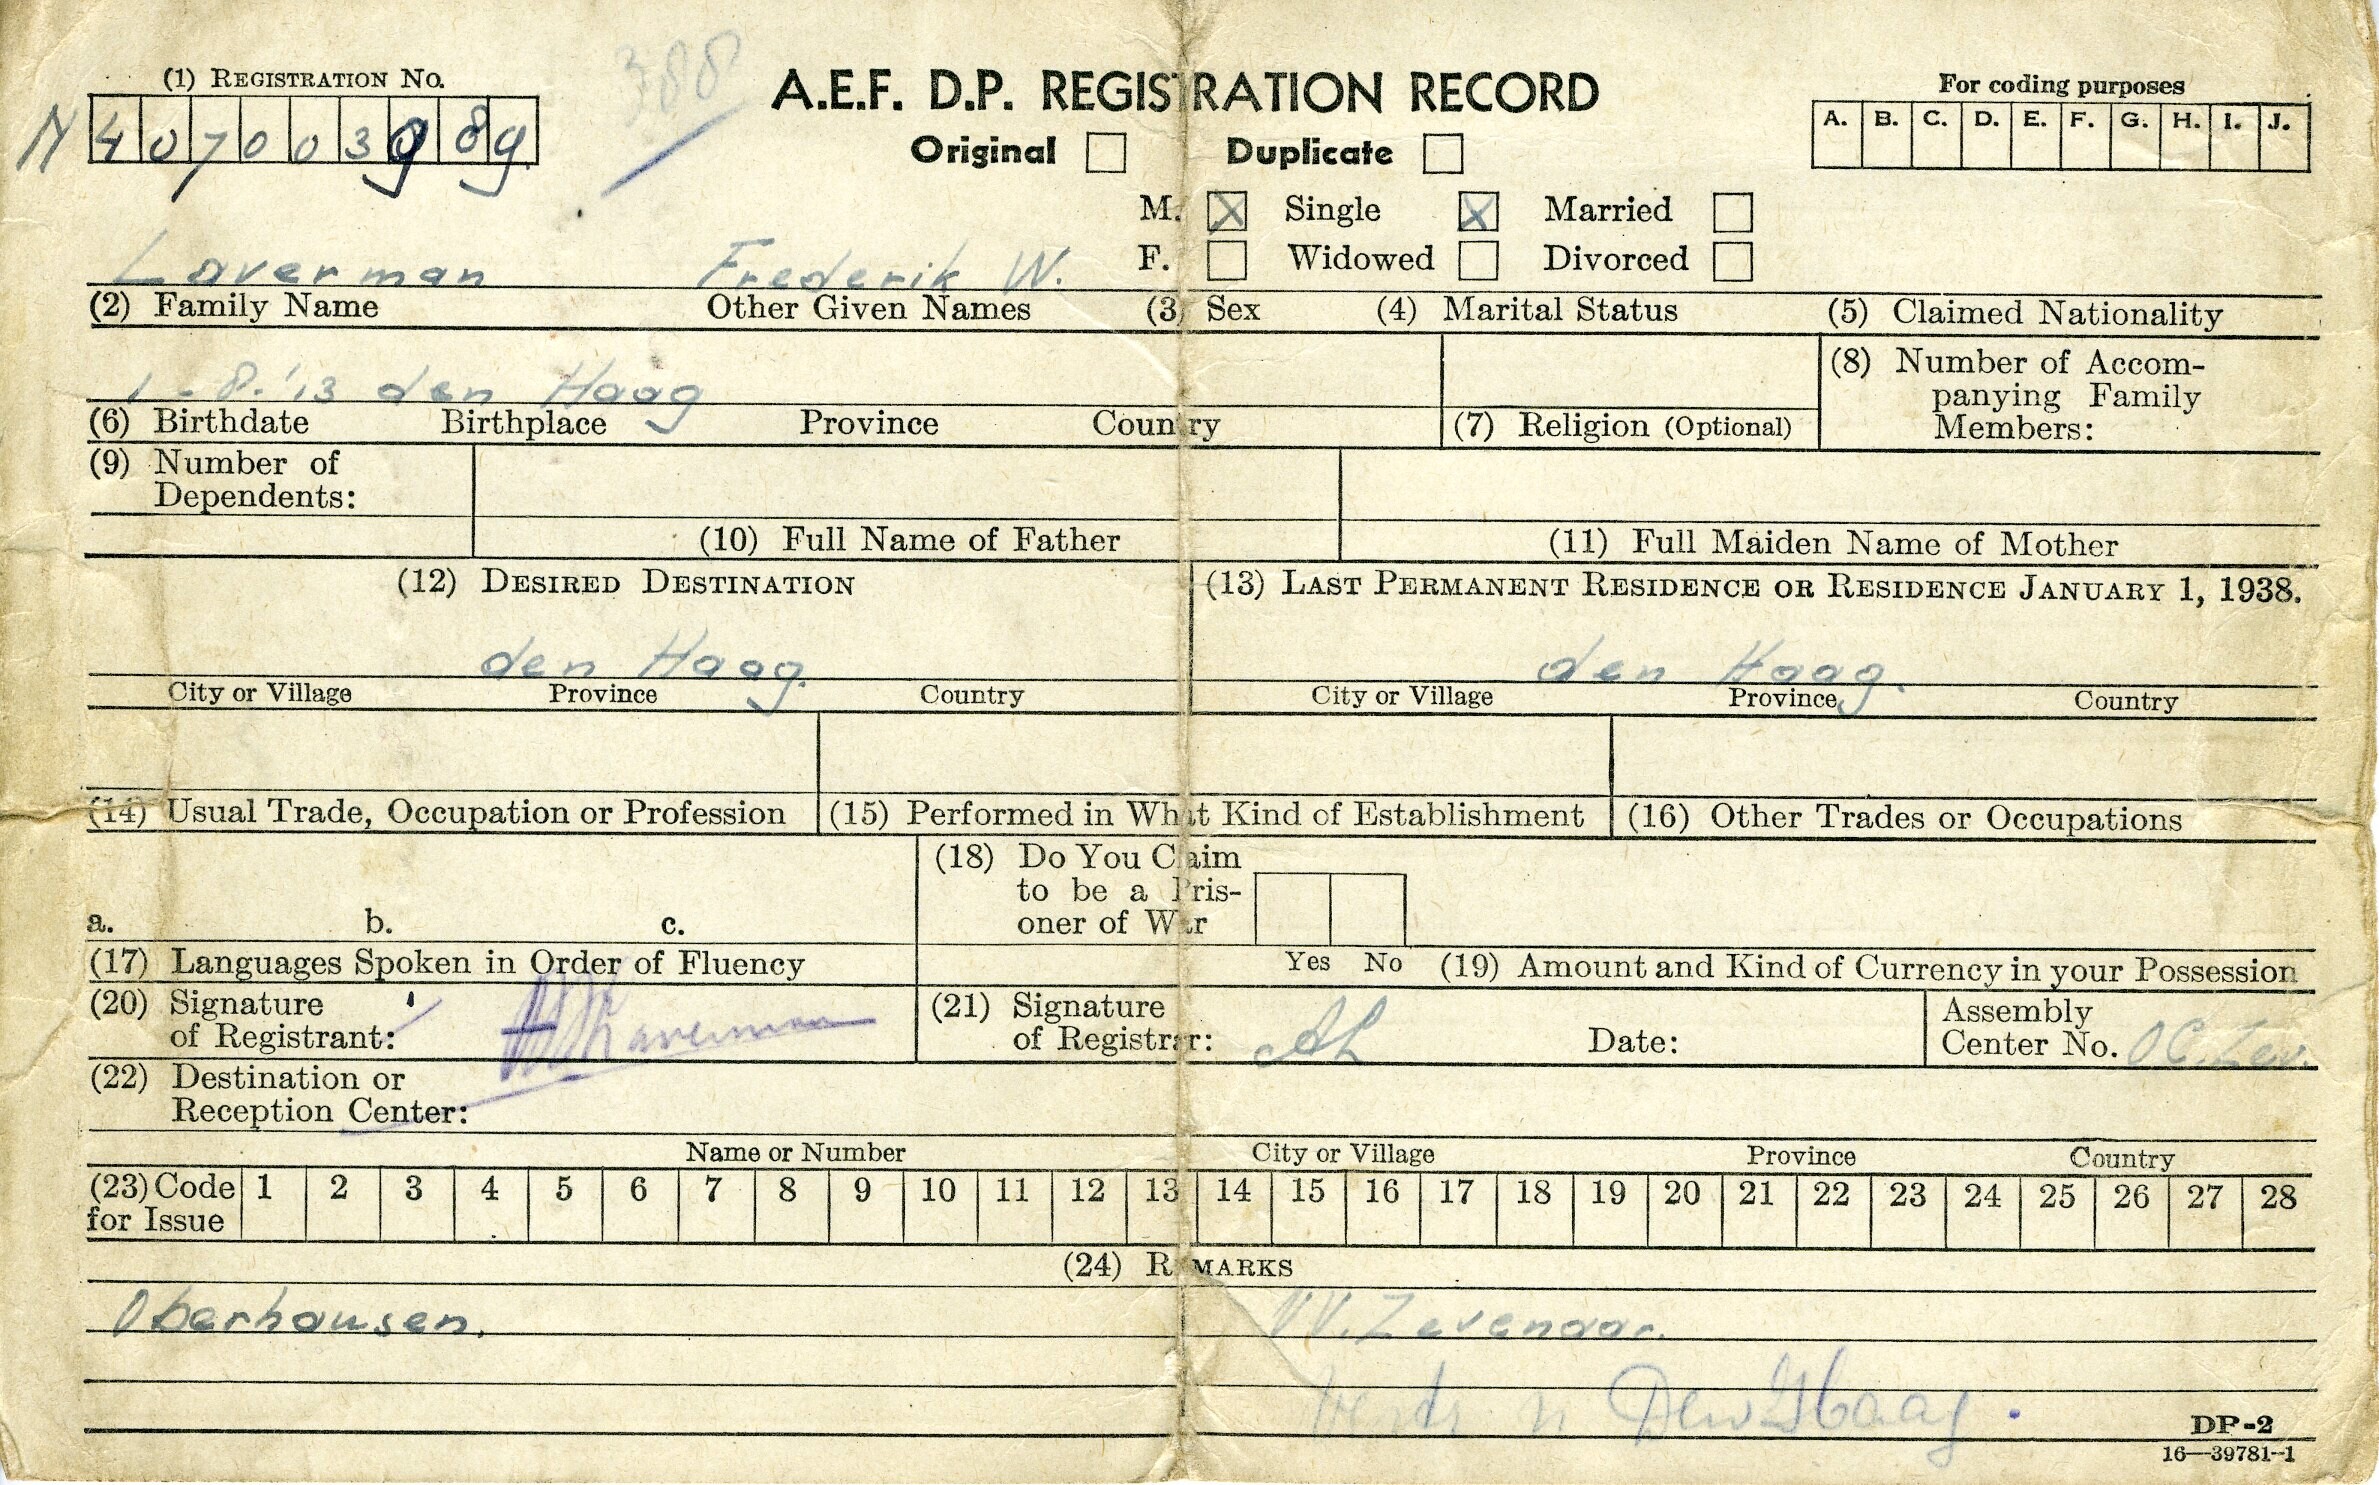 (1) REGISTRATION NO.
388
A.E.F. D.P. REGISTRATION RECORD
For coding purposes
N 4 0 7 0 0 3 9 8 9.
Original Duplicate
A. B. C. D. E. F. G. H. I. J.
M. X Single X Married
F. Widowed Divorced
Laverman Frederik W.
(2) Family Name Other Given Names (3) Sex (4) Marital Status (5) Claimed Nationality
1-8.'13 den Haag
(6) Birthdate Birthplace Province Country (7) Religion (Optional)
(8) Number of Accom-
panying Family
Members:
(9) Number of
Dependents:
(10) Full Name of Father (11) Full Maiden Name of Mother
(12) DESIRED DESTINATION (13) LAST PERMANENT RESIDENCE OR RESIDENCE JANUARY 1, 1938.
den Haag. den Haag.
City or Village Province Country City or Village Province Country
(14) Usual Trade, Occupation or Profession (15) Performed in What Kind of Establishment (16) Other Trades or Occupations
(18) Do You Claim
to be a Pris-
oner of War
a. b. c.
Yes No
(17) Languages Spoken in Order of Fluency (19) Amount and Kind of Currency in your Possession
(20) Signature
of Registrant: Laverman
(21) Signature
of Registrar: Date:
Assembly
Center No. OC. Zev.
(22) Destination or
Reception Center:
Name or Number City or Village Province Country
(23) Code
for Issue
1 2 3 4 5 6 7 8 9 10 11 12 13 14 15 16 17 18 19 20 21 22 23 24 25 26 27 28
(24) REMARKS
Oberhausen. VV. Zevenaar.
n Den Haag.
DP-2
16—39781-1